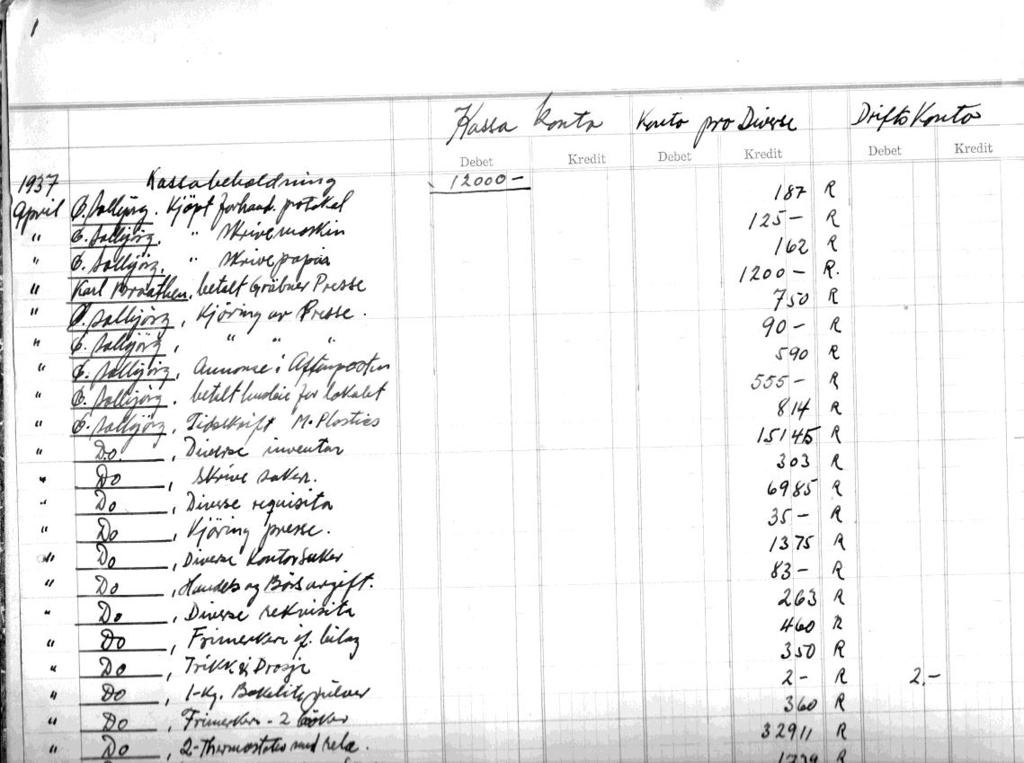 1
Kassa konto Konto pro Diverse Drifts Konto
Debet Kredit Debet Kredit Debet Kredit
1937 Kassabeholdning 12000-
April Kjöpt forhand. protokol 187 R
" " Skrivemaskin 125- R
" " Skrivepapir 162 R
" Karl Braathen, betalt Gräbner Presse 1200- R.
" Kjöring av Presse. 750 R
" " " " 90- R
" Annonse i Aftenposten 590 R
" betalt husleie for Lokalet 555- R
" Tidsskrift M. Plastics 814 R
" Do, Diverse inventar 15145 R
" Do, Skrive saker. 303 R
" Do, Diverse requisita 6985 R
" Do, Kjöring presse. 35- R
" Do, Diverse Kontorsaker 1375 R
" Do, Handels og Börs avgift. 83- R
" Do, Diverse rekvisita 263 R
" Do, Frimerker if. bilag 460 R
" Do, Trikk & Drosje 350 R
" Do, 1-kg. Bakelitpulver 2- R 2.-
" Do, Frimerker - 2 böker 360 R
" Do, 2-Thermostater med rele. 32911 R
1739 R